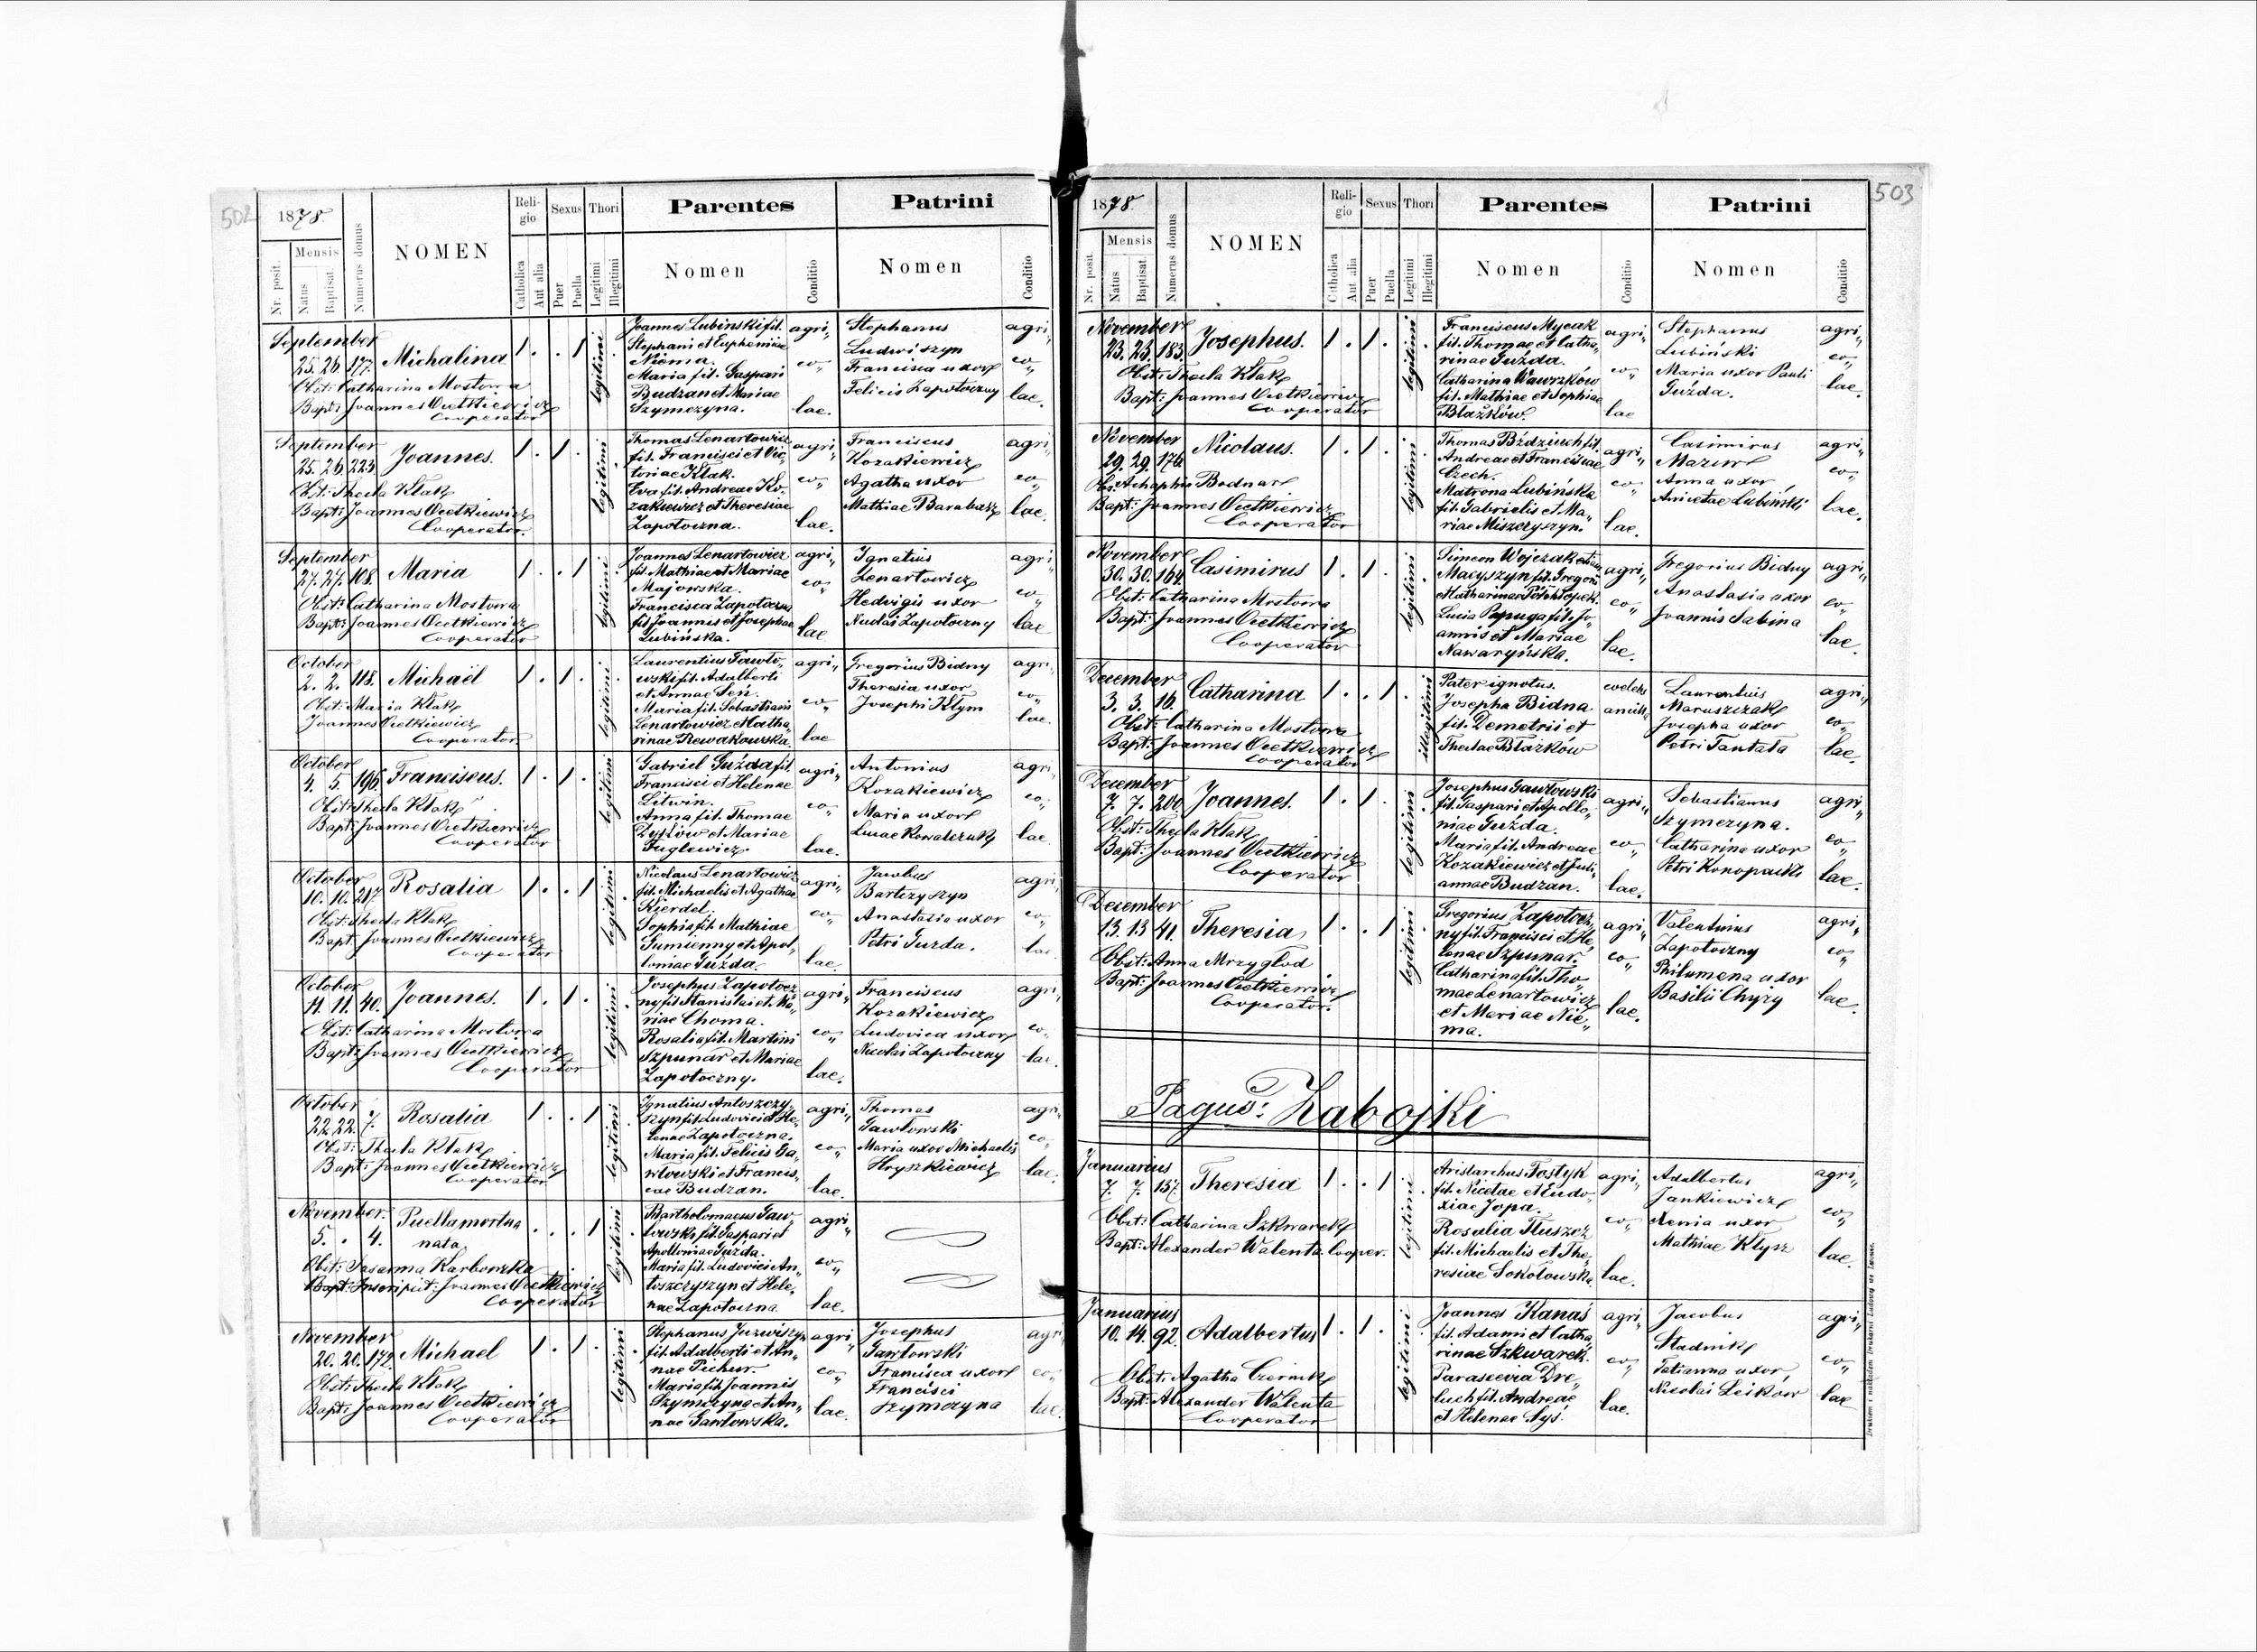 502
1878.
Nr. posit.
Mensis
Natus
Baptisat.
Numerus domus
NOMEN
Religio
Catholica
Aut alia
Sexus
Puer
Puella
Thori
Legitimi
Illegitimi
Parentes
Nomen
Conditio
Patrini
Nomen
Conditio
September
25. 26. 177. Michalina 1. . . 1 legitimi
Obst: Catharina Mostowa
Bapt: Joannes Cietkiewicz
Cooperator
Joannes Lubinski fil.
Stephani et Euphemiae
Niema.
Maria fil. Gaspari
Budzan et Mariae
Szymczyna.
agri„
co„
lae.
Stephanus
Ludwiszyn
Francisca uxor
Felicis Zapotoczny
agri„
co„
lae.
September
25. 26. 223. Joannes. 1. . 1. legitimi
Obst: Thecla Kłak
Bapt: Joannes Cietkiewicz
Cooperator.
Thomas Lenartowicz
fil. Francisci et Vic„
toriae Kłak.
Eva fil. Andreae Ko„
zakiewicz et Theresiae
Zapotoczna.
agri„
co„
lae.
Franciscus
Kozakiewicz
Agatha uxor
Mathiae Barabasz
agri„
co„
lae.
September
27. 27. 108. Maria 1. . . 1 legitimi
Obst: Catharina Mostowa
Bapt: Joannes Cietkiewicz
Cooperator
Joannes Lenartowicz
fil. Mathiae et Mariae
Majowska.
Francisca Zapotoczna
fil Joannis et Josephae
Lubińska.
agri„
co„
lae
Ignatius
Lenartowicz
Hedvigis uxor
Zapotoczny
agri„
co„
lae
October
2. 2. 118. Michaël 1. . 1. legitimi
Obst: Maria Kłak
Joannes Cietkiewicz
Cooperator
Laurentius Gawło„
wski fil. Adalberti
et Annae Seń.
Maria fil. Sebastiani
Lenartowicz et Catha„
rinae Rewakowska.
agri„
co„
lae
Gregorius Bidny
Theresia uxor
Josephi Kłym
agri„
co„
lae.
October
4. 5. 196. Franciscus. 1. . 1. legitimi
Obst: Thecla Kłak
Bapt: Joannes Cietkiewicz
Cooperator
Gabriel Guzda fil.
Francisci et Helenae
Litwin.
Anna fil. Thomae
et Mariae
Fuglewicz.
agri„
co„
lae.
Antonius
Kozakiewicz
Maria uxor
Lucae Kowalczuk
agri„
co„
lae.
October
10. 10. 217. Rosalia 1. . . 1 legitimi
Obst: Thecla Kłak
Bapt: Joannes Cietkiewicz
Cooperator
Nicolaus Lenartowicz
fil. Michaelis et Agathae
Kierdel.
Sophia fil. Mathiae
Gumienny et Apol„
loniae Guzda.
agri„
co„
lae.
Jacobus
Bartczyszyn
Anastasia uxor
Petri Guzda.
agri
co„
lae.
October
11. 11. 40. Joannes. 1. . 1. legitimi
Obst: Catharina Mostowa
Bapt: Joannes Cietkiewicz
Cooperator
Josephus Zapotocz„
ny fil Stanislai et Ma„
riae Choma.
Rosalia fil. Martini
Szpunar et Mariae
Zapotoczny.
agri„
co„
lae.
Franciscus
Kozakiewicz
Ludovica uxor
Nicolai Zapotoczny
agri„
co„
lae.
October
22. 22. 7. Rosalia 1. . . 1 legitimi
Obst: Thecla Kłak
Bapt: Joannes Cietkiewicz
Cooperator
Ignatius Antoszczy„
szyn fil. Ludovici et He„
lenae Zapotoczna.
Maria fil. Felicis Ga„
włowski et Francis„
cae Budzan.
agri„
co„
lae.
Thomas
Gawłowski
Maria uxor Michaelis
Hryszkiewicz
agri„
co„
lae.
November.
5. . 4. Puella mortua . . . 1 legitimi
nata
Obst: Susanna Karbowska
Bapt: Inscripsit: Joannes Cietkiewicz
Cooperator
Bartholomaeus Gaw„
łowski fil. Gaspari et
Apolloniae Guzda.
Maria fil. Ludovici An„
toszczyszyn et Hele„
nae Zapotoczna
agri„
co„
lae.
November
20. 20. 172. Michael 1. . 1. legitimi
Obst: Thecla Kłak
Bapt: Joannes Cietkiewicz
Cooperator
Stephanus Juzwiszyn
fil. Adalberti et An„
nae Pichur.
Maria fil. Joannis
Szymczyna et An„
nae Gawłowska.
agri„
co„
lae.
Josephus
Gawłowski
Francisca uxor
Francisci
Szymczyna
agri„
co„
lae.
503
1878.
Nr. posit.
Mensis
Natus
Baptisat.
Numerus domus
NOMEN
Religio
Catholica
Aut alia
Sexus
Puer
Puella
Thori
Legitimi
Illegitimi
Parentes
Nomen
Conditio
Patrini
Nomen
Conditio
November
23. 23. 183. Josephus. 1. . 1. legitimi
Obst: Thecla Kłak
Bapt: Joannes Cietkiewicz
Cooperator
Franciscus Mycak
fil. Thomae et Catha„
rinae Guzda.
Catharina Wawrzków
fil. Mathiae et Sophiae
Błażków.
agri„
co„
lae
Stephanus
Lubiński
Maria uxor Pauli
Guzda.
agri„
co„
lae.
November
29. 29. 176. Nicolaus. 1. . 1. legitimi
Obst: Bodnar
Bapt: Joannes Cietkiewicz
Cooperator
Thomas Bździuch fil.
Andreae et Franciscae
Czech.
Matrona Lubińska
fil. Gabrielis et Ma„
riae Miszczyszyn.
agri„
co„
lae.
Casimirus
Mazur
Anna uxor
Anicetae Lubiński
agri„
co„
lae.
November
30. 30. 164. Casimirus 1. . 1. legitimi
Obst: Catharina Mostowa
Bapt: Joannes Cietkiewicz
Cooperator
Simeon Wojczak etiam
Macyszyn fil. Gregorii
et Catharinae
Lucia Papuga fil. Jo„
annis et Mariae
Nawaryńska.
agri„
co„
lae.
Gregorius Bidny
Anastasia uxor
Joannis Sabina
agri„
co„
lae.
December
3. 3. 16. Catharina 1. . . 1 illegitimi
Obst: Catharina Mostowa
Bapt: Joannes Cietkiewicz
Cooperator
Pater ignotus.
Josepha Bidna
fil. Demetrii et
Theclae Błażkow
coelebs
ancilla
Laurentuis
Maruszczak
Josepha uxor
Petri Tantata
agri„
co„
lae.
December
7. 7. 200. Joannes. 1. . 1. legitimi
Obst: Thecla Kłak
Bapt: Joannes Cietkiewicz
Cooperator
Josephus Gawłowski
fil. Gaspari et Apollo„
niae Guzda.
Maria fil. Andreae
Kozakiewicz et Juli„
annae Budzan.
agri„
co„
lae.
Sebastianus
Szymczyna.
Catharina uxor
Petri Konopacki
agri„
co„
lae.
December
13. 13. 41. Theresia 1. . . 1 legitimi
Obst: Anna Mrzygłod
Bapt: Joannes Cietkiewicz
Cooperator.
Gregorius Zapotocz„
ny fil. Francisci et He„
lenae Szpunar.
Catharina fil. Tho„
mae Lenartowicz
et Mariae Nie„
ma.
agri„
co„
lae.
Valentinus
Zapotoczny
Philumena uxor
Basilii Chyży
agri„
co„
lae.
Pagus: Zabojki
Januarius
7. 7. 157. Theresia 1. . . 1 legitimi
Obst: Catharina Szkwarek
Bapt: Alexander Walenta Cooper.
Aristarchus Fostyk
fil. Nicetae et Eudo„
xiae Jopa.
Rosalia Tłuszcz
fil. Michaelis et The„
resiae Sokołowska.
agri„
co„
lae.
Adalbertus
Jankiewicz
Xenia uxor
Mathiae Kłysz
agri„
co„
lae.
Januarius
10. 14. 92. Adalbertus 1. . 1. legitimi
Obst: Agatha Czernik
Bapt: Alexander Walenta
Cooperator
Joannes Kanas
fil. Adami et Catha„
rinae Szkwarek.
Parascevia Dre„
luch fil. Andreae
et Helenae Łyś.
agri„
co„
lae.
Jacobus
Stadnik
Tatianna uxor
Nicolai Leskow
agri„
co„
lae
Drukiem i nakładem Drukarni Ludowej we Lwowie.